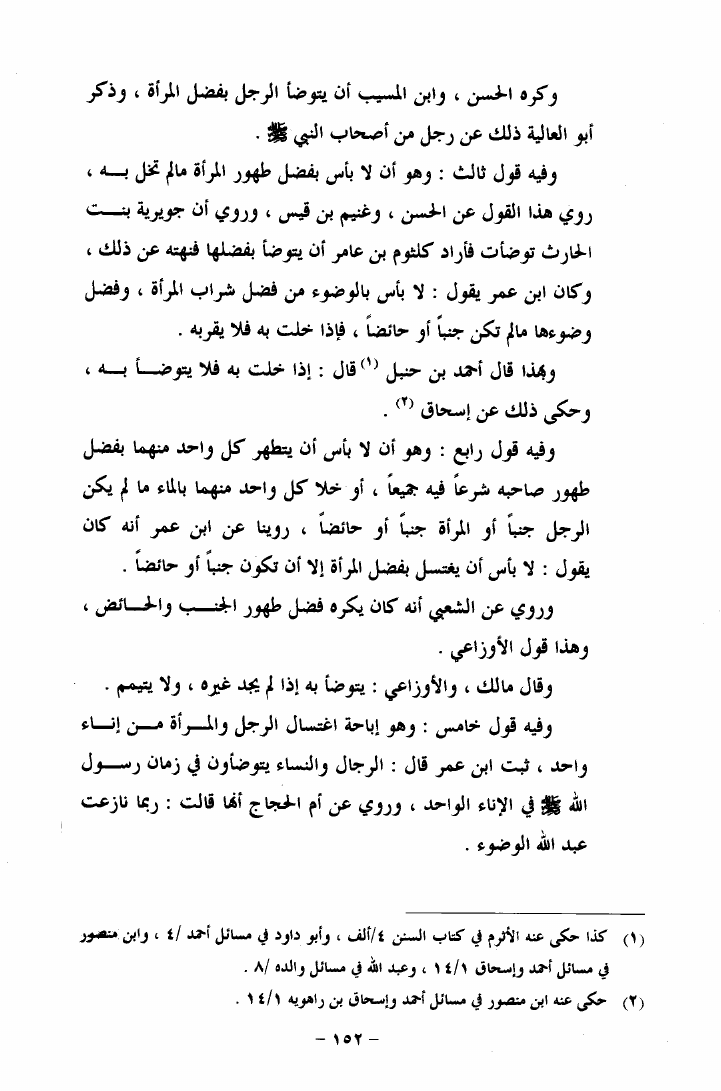 وكره الحسن ، وابن المسيب أن يتوضأ الرجل بفضل المرأة ، وذكر
أبو العالية ذلك عن رجل من أصحاب النبي ﷺ .
وفيه قول ثالث : وهو أن لا بأس بفضل طهور المرأة مالم تخل بـــه ،
روي هذا القول عن الحسن ، وغنيم بن قيس ، وروي أن جويرية بنـــت
الحارث توضأت فأراد كلثوم بن عامر أن يتوضأ بفضلها فنهته عن ذلك ،
وكان ابن عمر يقول : لا بأس بالوضوء من فضل شراب المرأة ، وفضل
وضوءها مالم تكن جنباً أو حائضاً ، فإذا خلت به فلا يقربه .
وبهذا قال أحمد بن حنبل (١) قال : إذا خلت به فلا يتوضـــأ بـــه ،
وحكى ذلك عن إسحاق (٢) .
وفيه قول رابع : وهو أن لا بأس أن يتطهر كل واحد منهما بفضل
طهور صاحبه شرعاً فيه جميعاً ، أو خلا كل واحد منهما بالماء ما لم يكن
الرجل جنباً أو المرأة جنباً أو حائضاً ، روينا عن ابن عمر أنه كان
يقول : لا بأس أن يغتسل بفضل المرأة إلا أن تكون جنباً أو حائضاً .
وروي عن الشعبي أنه كان يكره فضل طهور الجنـــب والحـــائض ،
وهذا قول الأوزاعي .
وقال مالك ، والأوزاعي : يتوضأ به إذا لم يجد غيره ، ولا يتيمم .
وفيه قول خامس : وهو إباحة اغتسال الرجل والمـــرأة مـــن إنـــاء
واحد ، ثبت ابن عمر قال : الرجال والنساء يتوضأون في زمان رســـول
الله ﷺ في الإناء الواحد ، وروي عن أم الحجاج أنها قالت : ربما نازعت
عبد الله الوضوء .
(١) كذا حكى عنه الأثرم في كتاب السنن ٤/ألف ، وأبو داود في مسائل أحمد /٤ ، وابن منصور
في مسائل أحمد وإسحاق ١٤/١ ، وعبد الله في مسائل والده /٨ .
(٢) حكى عنه ابن منصور في مسائل أحمد وإسحاق بن راهويه ١٤/١ .
– ١٥٢ –